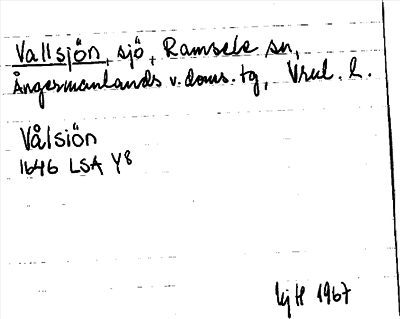 Vallsjön, sjö, Ramsele sn,
Ångermanlands v. doms. tg, Vrnl. l.
Vålsiön
1646 LSA Y8
HjH 1967